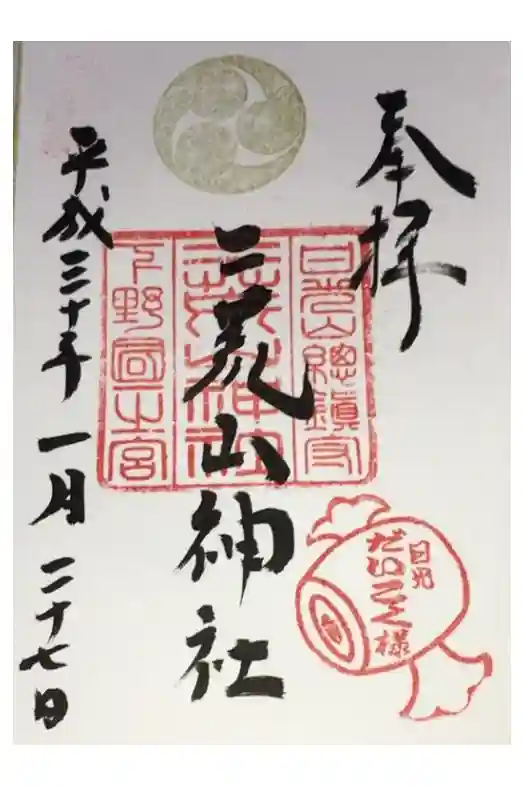 奉拝
日光山總鎮守
二荒山神社
二荒山神社
下野國一之宮
平成三十年一月二十七日
日光
だいこく様